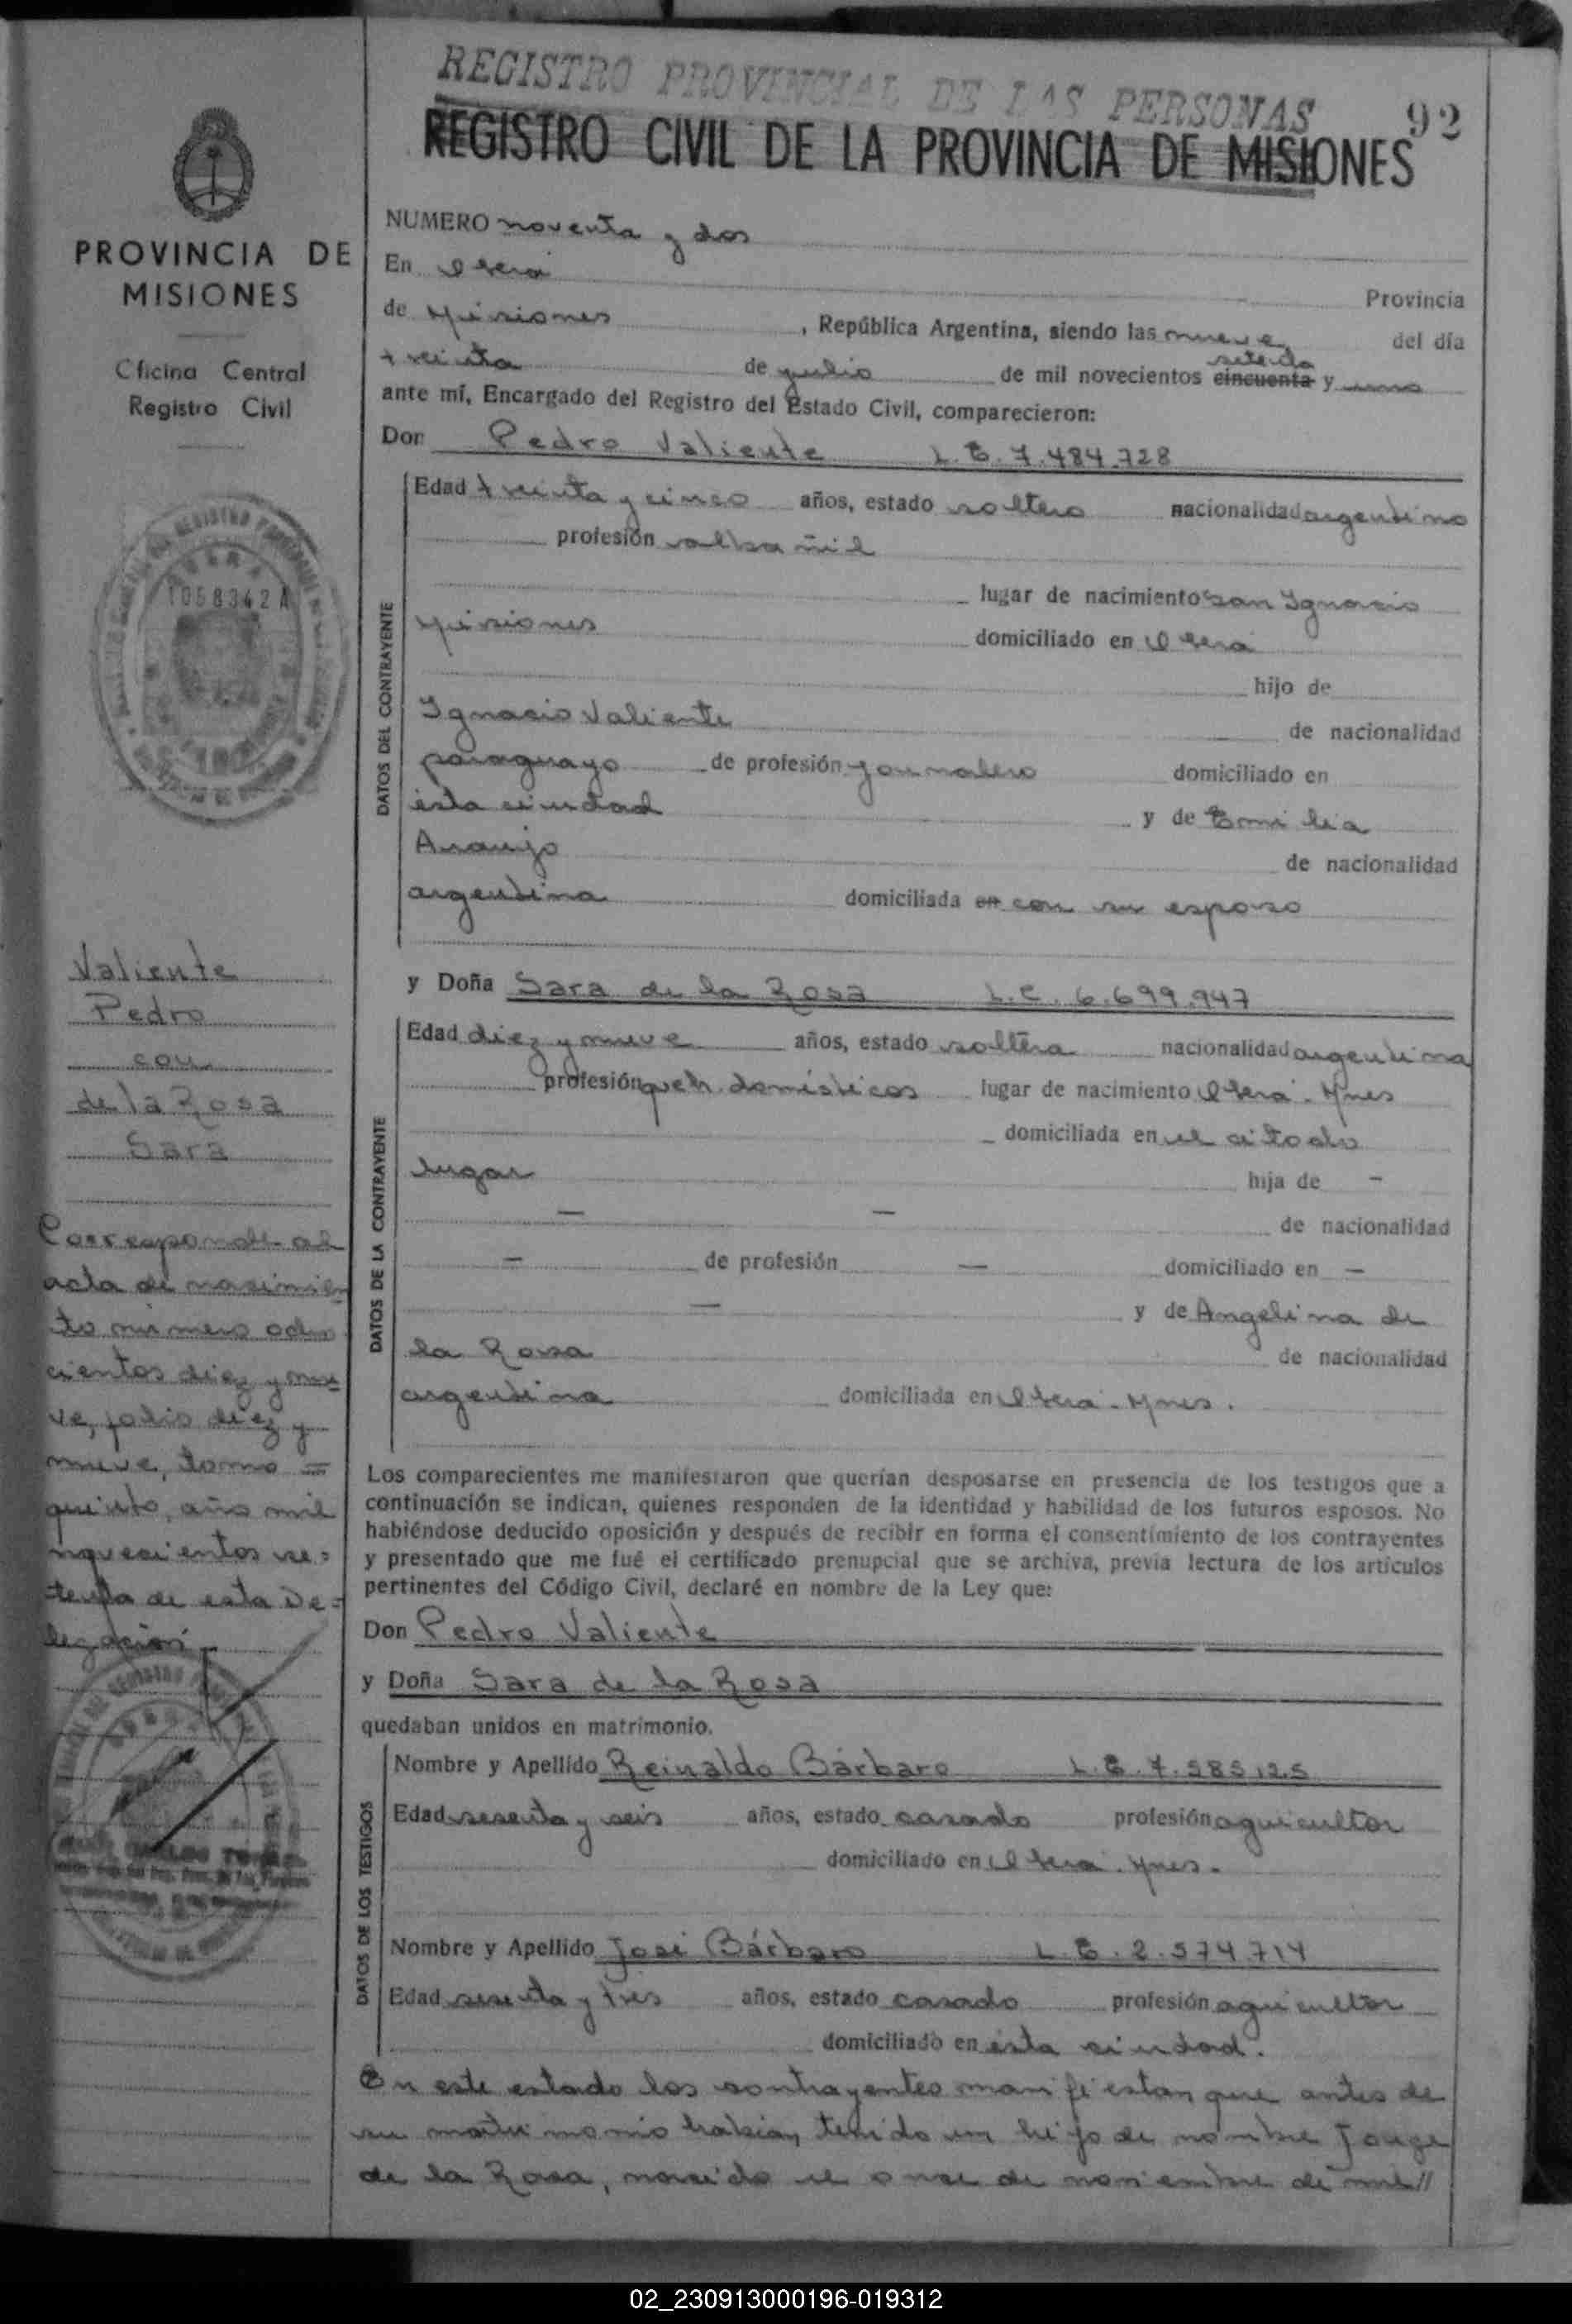 REGISTRO PROVINCIAL DE LAS PERSONAS
92
REGISTRO CIVIL DE LA PROVINCIA DE MISIONES
PROVINCIA DE
MISIONES
Oficina Central
Registro Civil
1058342 A
Valiente
Pedro
con
de la Rosa
Sara
Corresponde al
acta de nacimien
to número ocho
cientos diez y nue
ve, folio diez y
nueve, tomo =
quinto, año mil
novecientos se=
tenta de esta De=
legación
NUMERO noventa y dos
En Oberá
Provincia
de Misiones, República Argentina, siendo las nueve del día
treinta de julio de mil novecientos cincuenta setenta y uno
ante mí, Encargado del Registro del Estado Civil, comparecieron:
Don Pedro Valiente L.E. 7.484.728
DATOS DEL CONTRAYENTE
Edad treinta y cinco años, estado soltero nacionalidad argentino
profesión albañil
lugar de nacimiento San Ignacio
Misiones domiciliado en Oberá
hijo de
Ignacio Valiente de nacionalidad
paraguayo de profesión jornalero domiciliado en
ésta ciudad y de Emilia
Araujo de nacionalidad
argentina domiciliada en con su esposo
y Doña Sara de la Rosa L.C. 6.699.947
DATOS DE LA CONTRAYENTE
Edad diez y nueve años, estado soltera nacionalidad argentina
profesión queh. domésticos lugar de nacimiento Oberá - Mnes
domiciliada en el citado
lugar hija de -
- - de nacionalidad
- de profesión - domiciliado en -
- y de Angelina de
la Rosa de nacionalidad
argentina domiciliada en Oberá - Mnes.
Los comparecientes me manifestaron que querían desposarse en presencia de los testigos que a
continuación se indican, quienes responden de la identidad y habilidad de los futuros esposos. No
habiéndose deducido oposición y después de recibir en forma el consentimiento de los contrayentes
y presentado que me fué el certificado prenupcial que se archiva, previa lectura de los artículos
pertinentes del Código Civil, declaré en nombre de la Ley que:
Don Pedro Valiente
y Doña Sara de la Rosa
quedaban unidos en matrimonio.
DATOS DE LOS TESTIGOS
Nombre y Apellido Reinaldo Bárbaro L.E. 7.585.125
Edad sesenta y seis años, estado casado profesión agricultor
domiciliado en Oberá. Mnes.
Nombre y Apellido José Bárbaro L.E. 2.574.714
Edad sesenta y tres años, estado casado profesión agricultor
domiciliado en ésta ciudad.
En este estado los contrayentes manifiestan que antes de
su matrimonio habían tenido un hijo de nombre Jorge
de la Rosa, nacido el once de noviembre de mil//
02_230913000196-019312